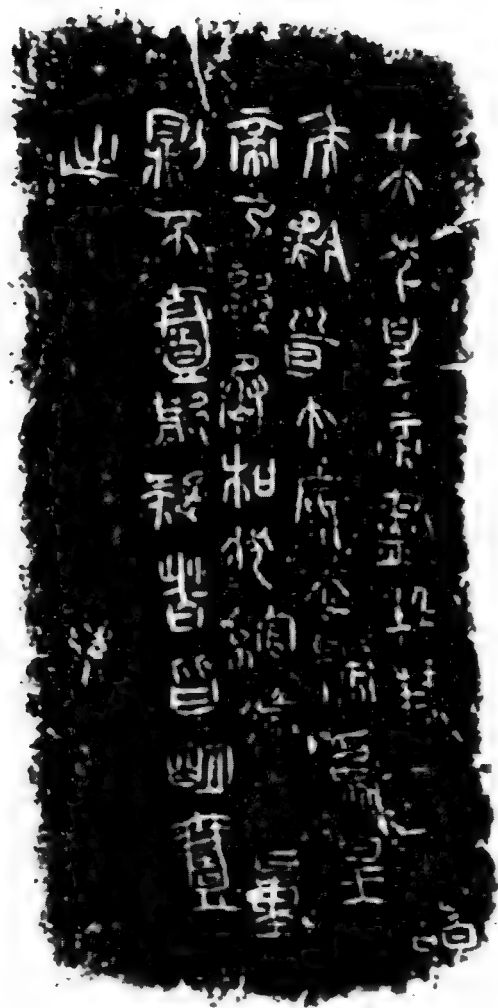 廿六年皇帝盡并兼天下諸
侯黔首大安立號為皇
帝乃詔丞相狀綰法度量
則不壹歉疑者皆明壹
之